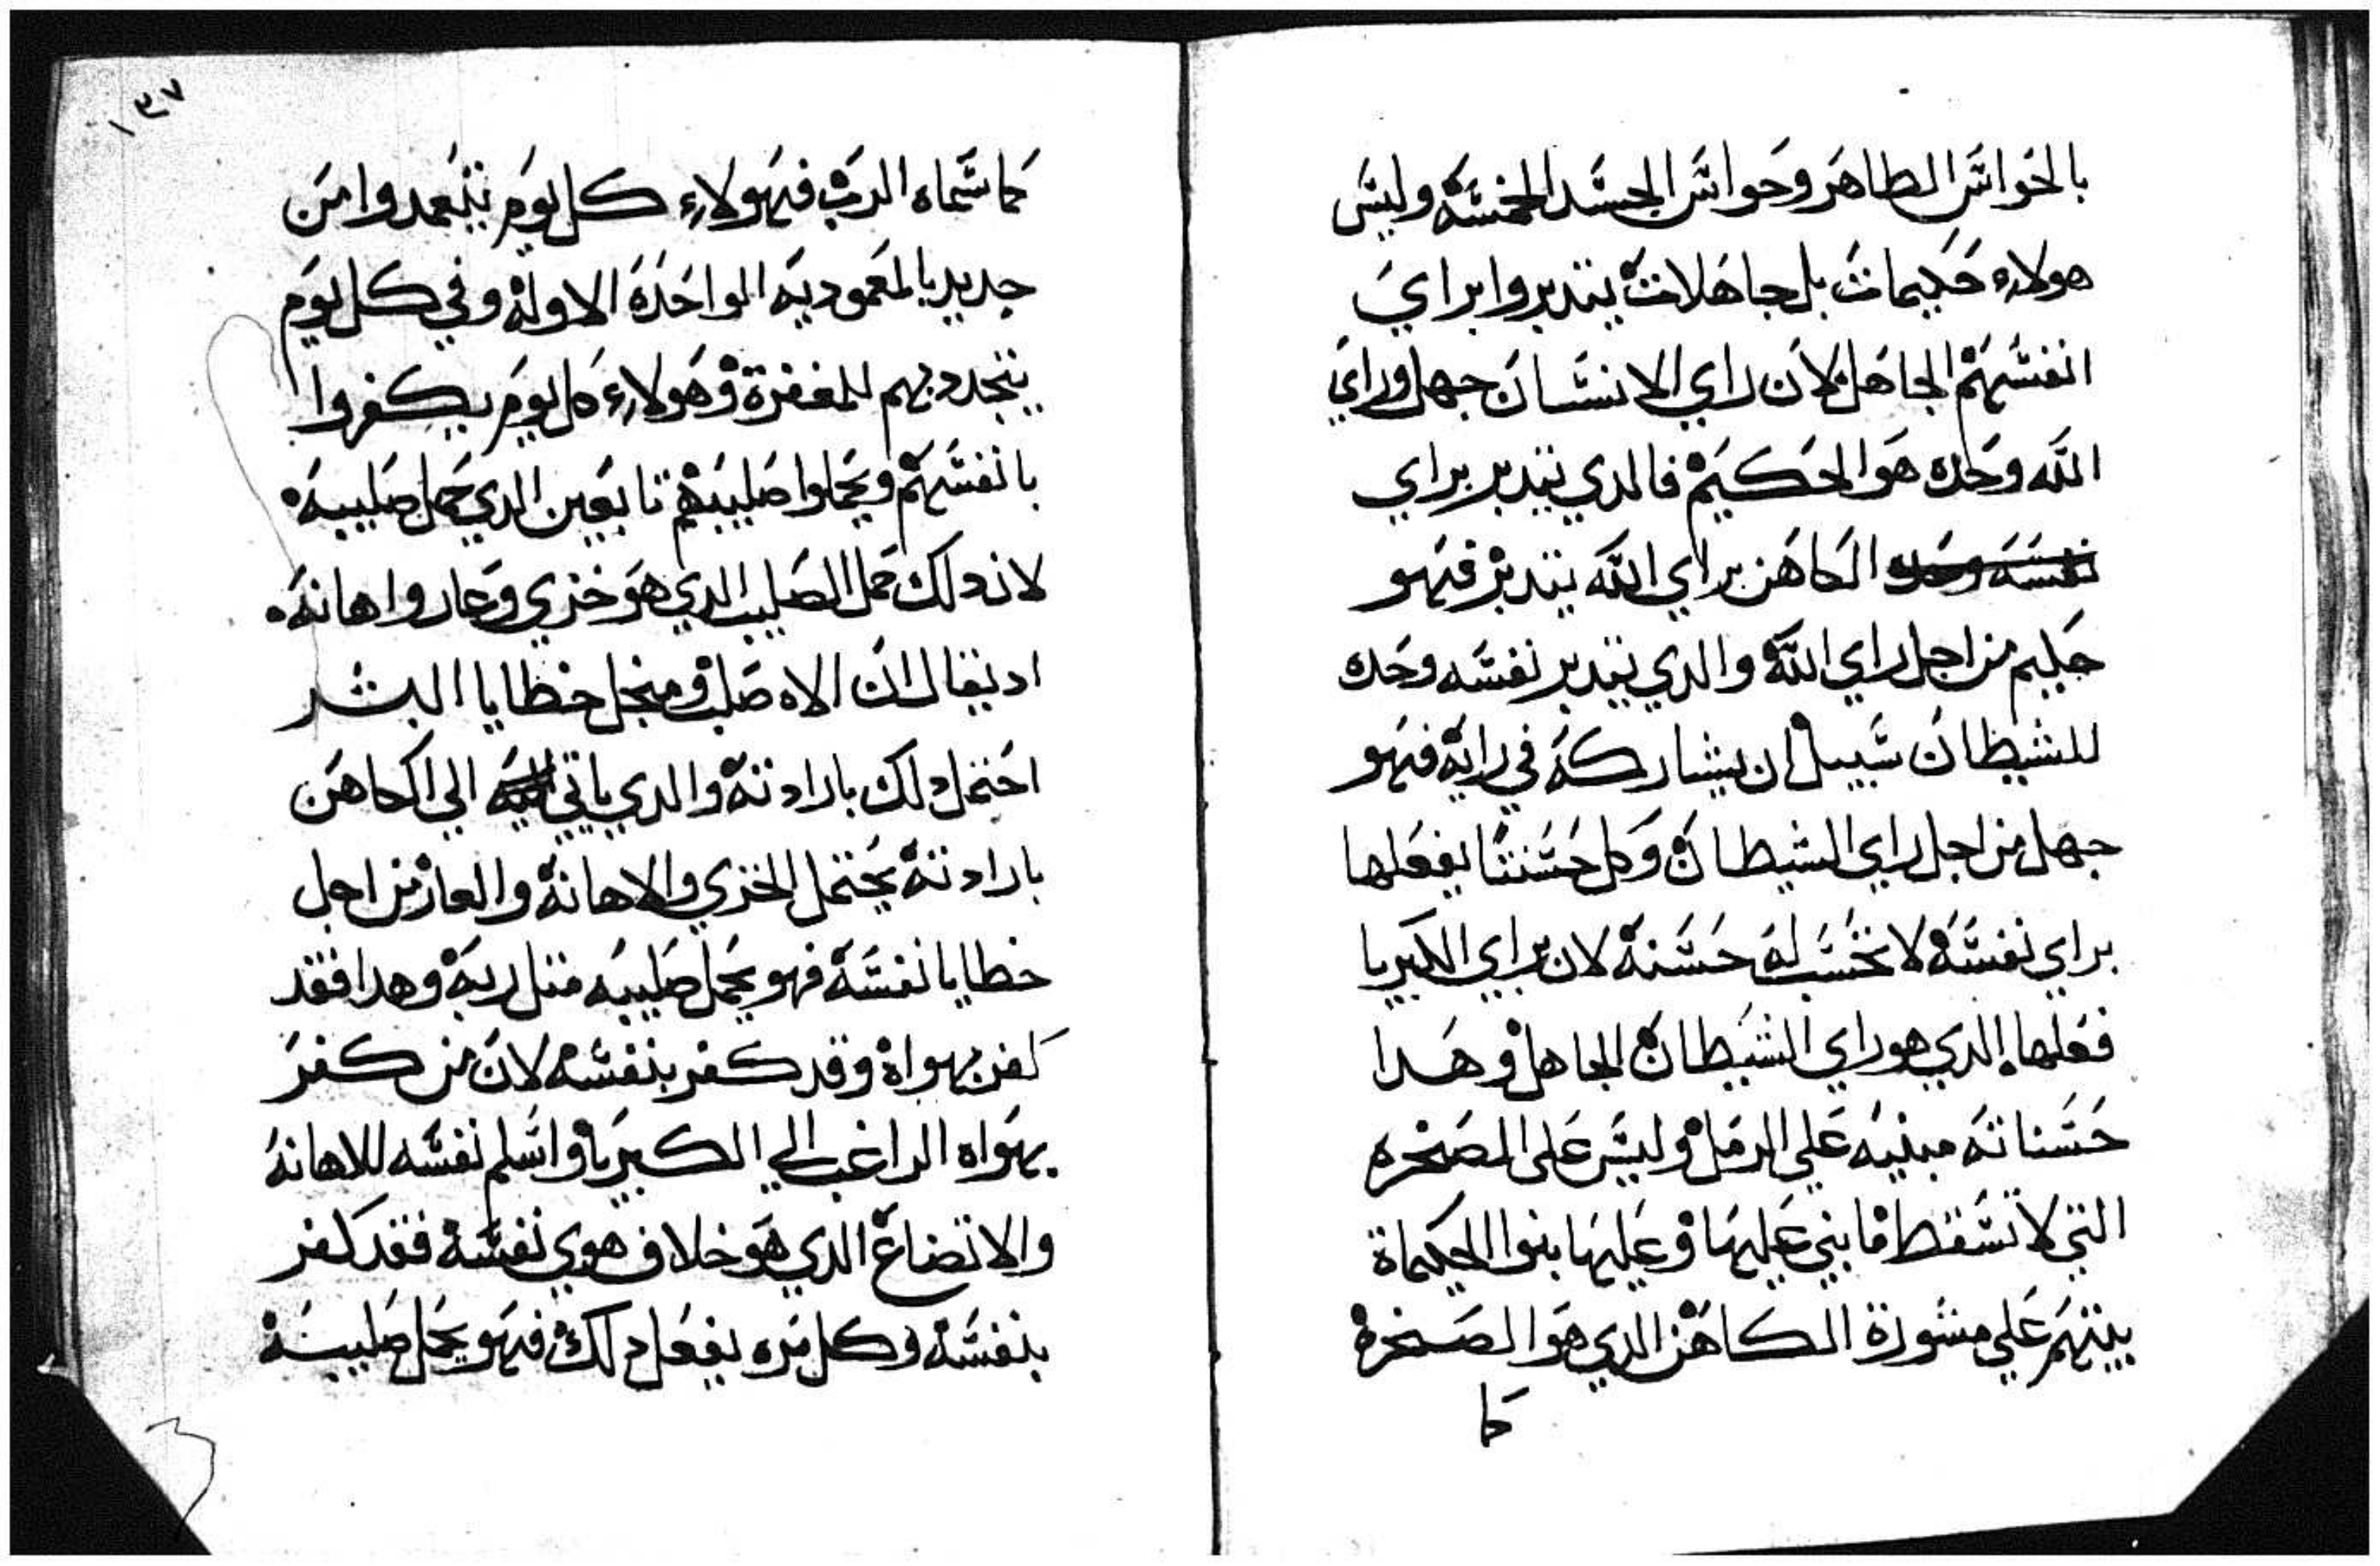 بالحواس الطاهر وحواس الجسد الخمسه وليس
هولاء حكيمات بل جاهلات يتدبروا براي
انفسهم الجاهل لان راي الانسان جهل وراي
الله وحده هو الحكيم فالدي يتدبر براي
نفسه وحده الكاهن براي الله يتدبر فهو
حكيم من اجل راي الله والدي يتدبر نفسه وحده
للشيطان سبيل ان يشاركه في رايه فهو
جهل من اجل راي الشيطان وكل حسنتا يفعلها
براي نفسه لا تحسب له حسنة لان براي الكبريا
فعلها الدي هو راي الشيطان الجاهل وهدا
حسناته مبنيه علي الرمل وليس على الصخره
التي لا تسقط ما بني عليها وعليها بنوا الحكيماة
بيتهم علي مشورة الكاهن الدي هو الصخره
كما
١٣٧
كما سماه الرب فهولاء كل يوم يتعمدوا من
جديد بالمعموديه الواحده الاوله وفي كل يوم
يتجدد بهم للمغفرة وهولاء كل يوم يكفروا
بانفسهم ويحملوا صليبهم تابعين الدي حمل صليبه
لان دلك حمل الصليب الدي هو خزي وعار واهانه
اد يقال ان الاه صلب ومنجل خطايا البشر
احتمل دلك بارادته والدي ياتي اليه الي الكاهن
بارادته يحتمل الخزي والاهانة والعار من اجل
خطايا نفسه فهو يحمل صليبه متل ربه وهدا فقد
كفر بهواه وقد كفر بنفسه لان من كفر
بهواه الراغب الي الكبريا واسلم نفسه للاهانه
والاتضاع الدي هو خلاف هوي نفسه فقد كفر
بنفسه وكل مره يفعل دلك فهو يحمل صليبه